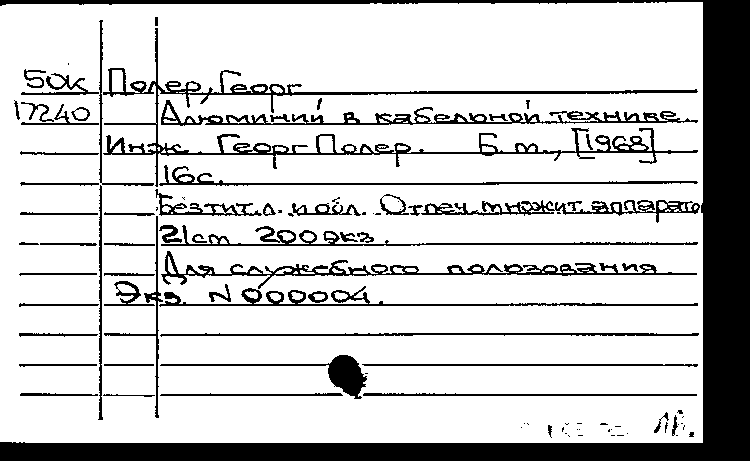 50к Полер, Георг
17240 Алюминий в кабельной технике.
Инж. Георг Полер. Б.м., [1968].
16с.
Без тит.л. и обл. Отпеч. множит. аппарато
21 ст. 200 экз.
Для служебного пользования
Экз. N 000004.